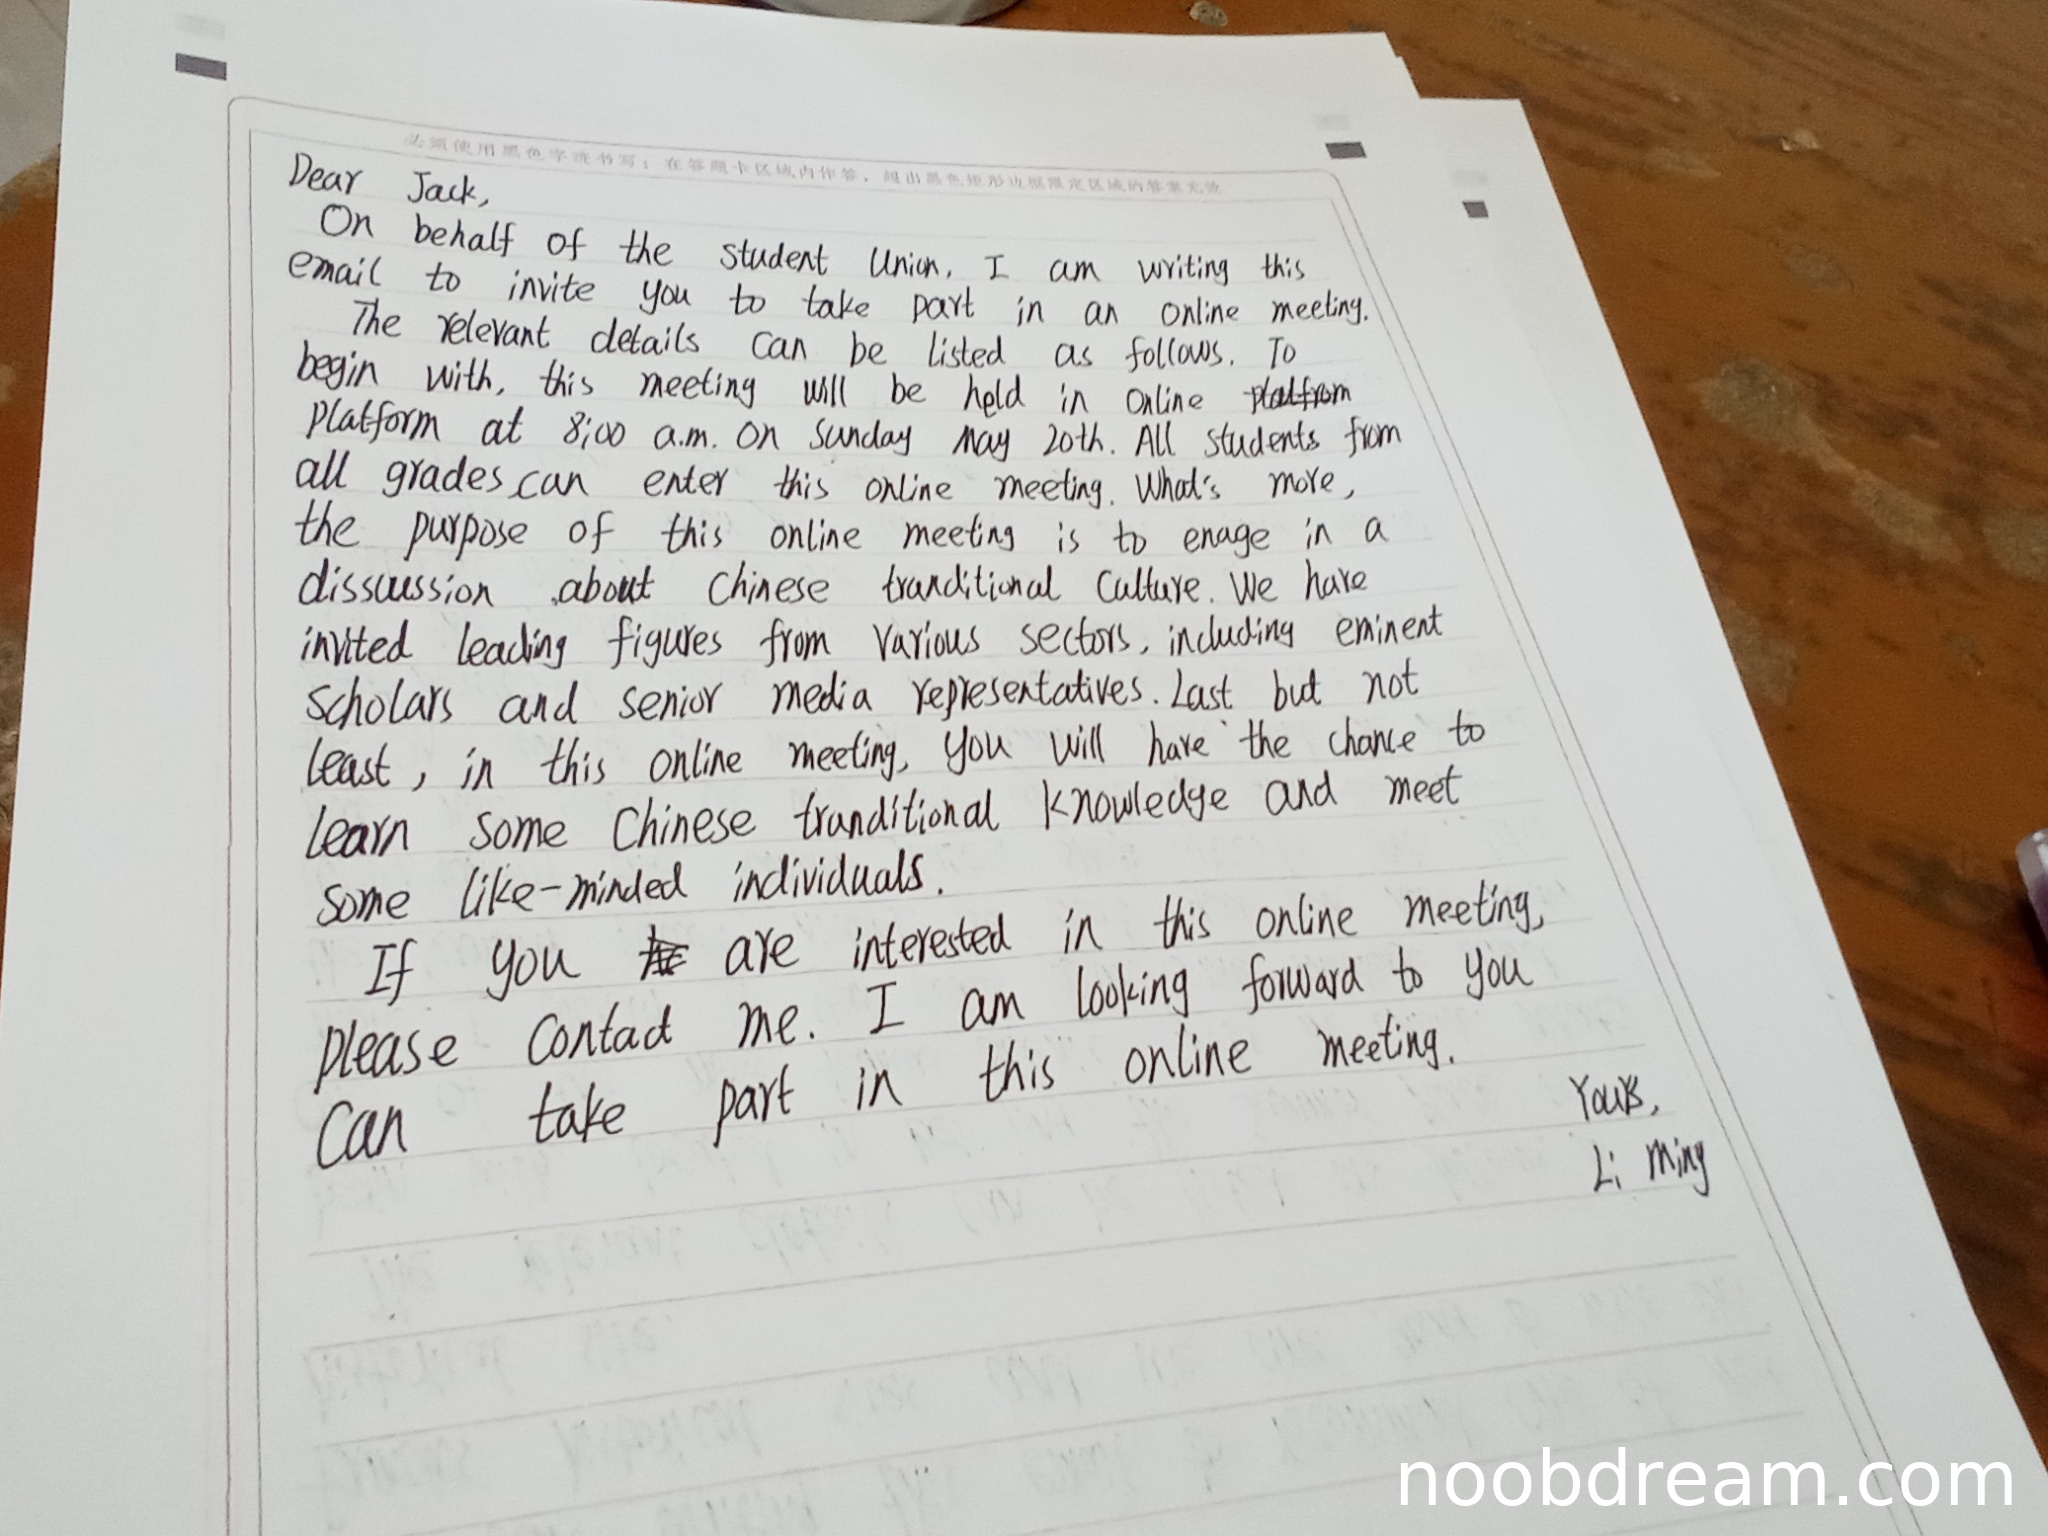 必须使用黑色字迹书写；在答题卡区域内作答，超出黑色矩形边框限定区域的答案无效
Dear Jack,
On behalf of the student Union, I am writing this
email to invite you to take part in an online meeting.
The relevant details can be listed as follows. To
begin with, this meeting will be held in online platfrom
platform at 8:00 a.m. on Sunday May 20th. All students from
all grades can enter this online meeting. What's more,
the purpose of this online meeting is to enage in a
disscussion about Chinese tranditional culture. We have
invited leading figures from various sectors, including eminent
scholars and senior media representatives. Last but not
least, in this online meeting, you will have the chance to
learn some Chinese tranditional knowledge and meet
some like-minded individuals.
If you are interested in this online meeting,
please contact me. I am looking forward to you
can take part in this online meeting.
Yours,
Li Ming
noobdream.com